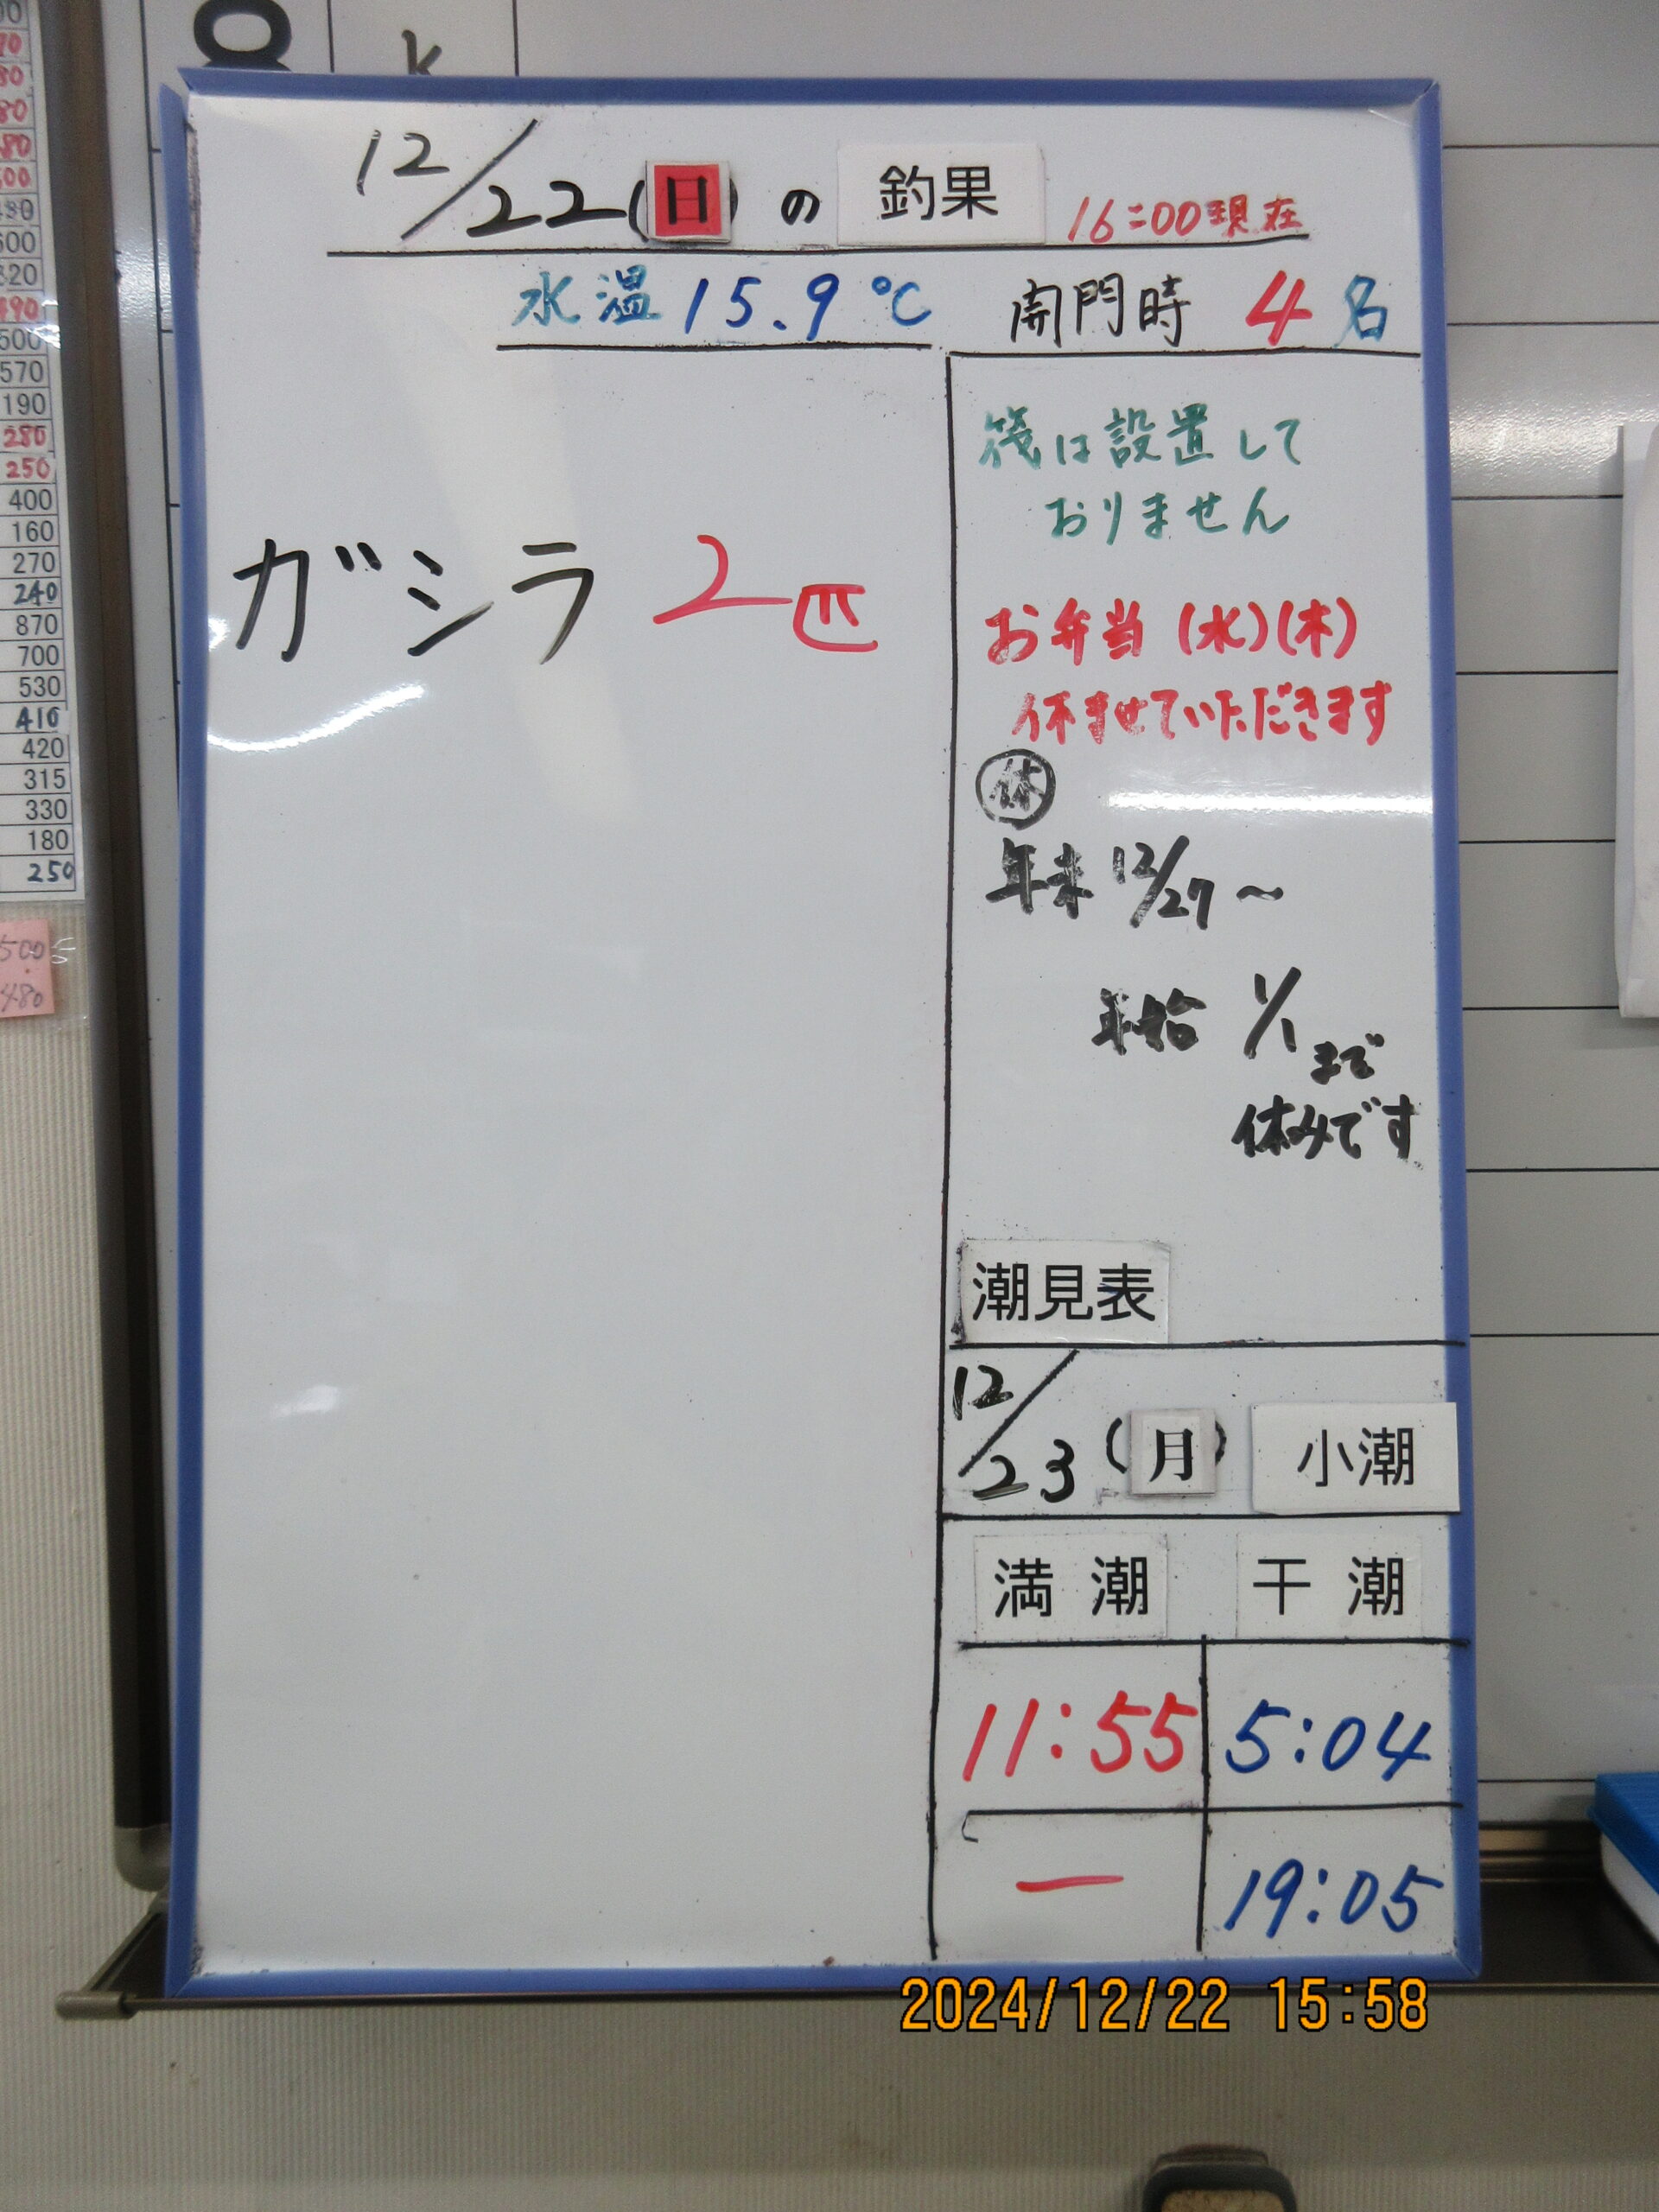 12/22(日)の 釣果 16:00現在
水温 15.9℃ 開門時 4名
ガシラ 2匹
筏は設置して
おりません
お弁当(水)(木)
休ませていただきます
㊡
年末 12/27~
年始 1/1まで
休みです
潮見表
12/23(月) 小潮
満潮 干潮
11:55 5:04
— 19:05
2024/12/22 15:58
570
190
280
250
400
160
270
240
870
700
530
410
420
315
330
180
250